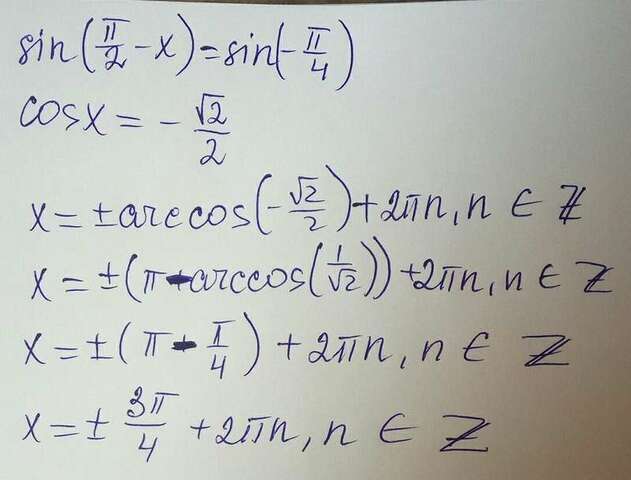 sin(π/2 - x) = sin(-π/4)
cosx = - √2/2
x = ± arccos(-√2/2) + 2πn, n ∈ Z
x = ±(π - arccos(1/√2)) + 2πn, n ∈ Z
x = ±(π - π/4) + 2πn, n ∈ Z
x = ± 3π/4 + 2πn, n ∈ Z